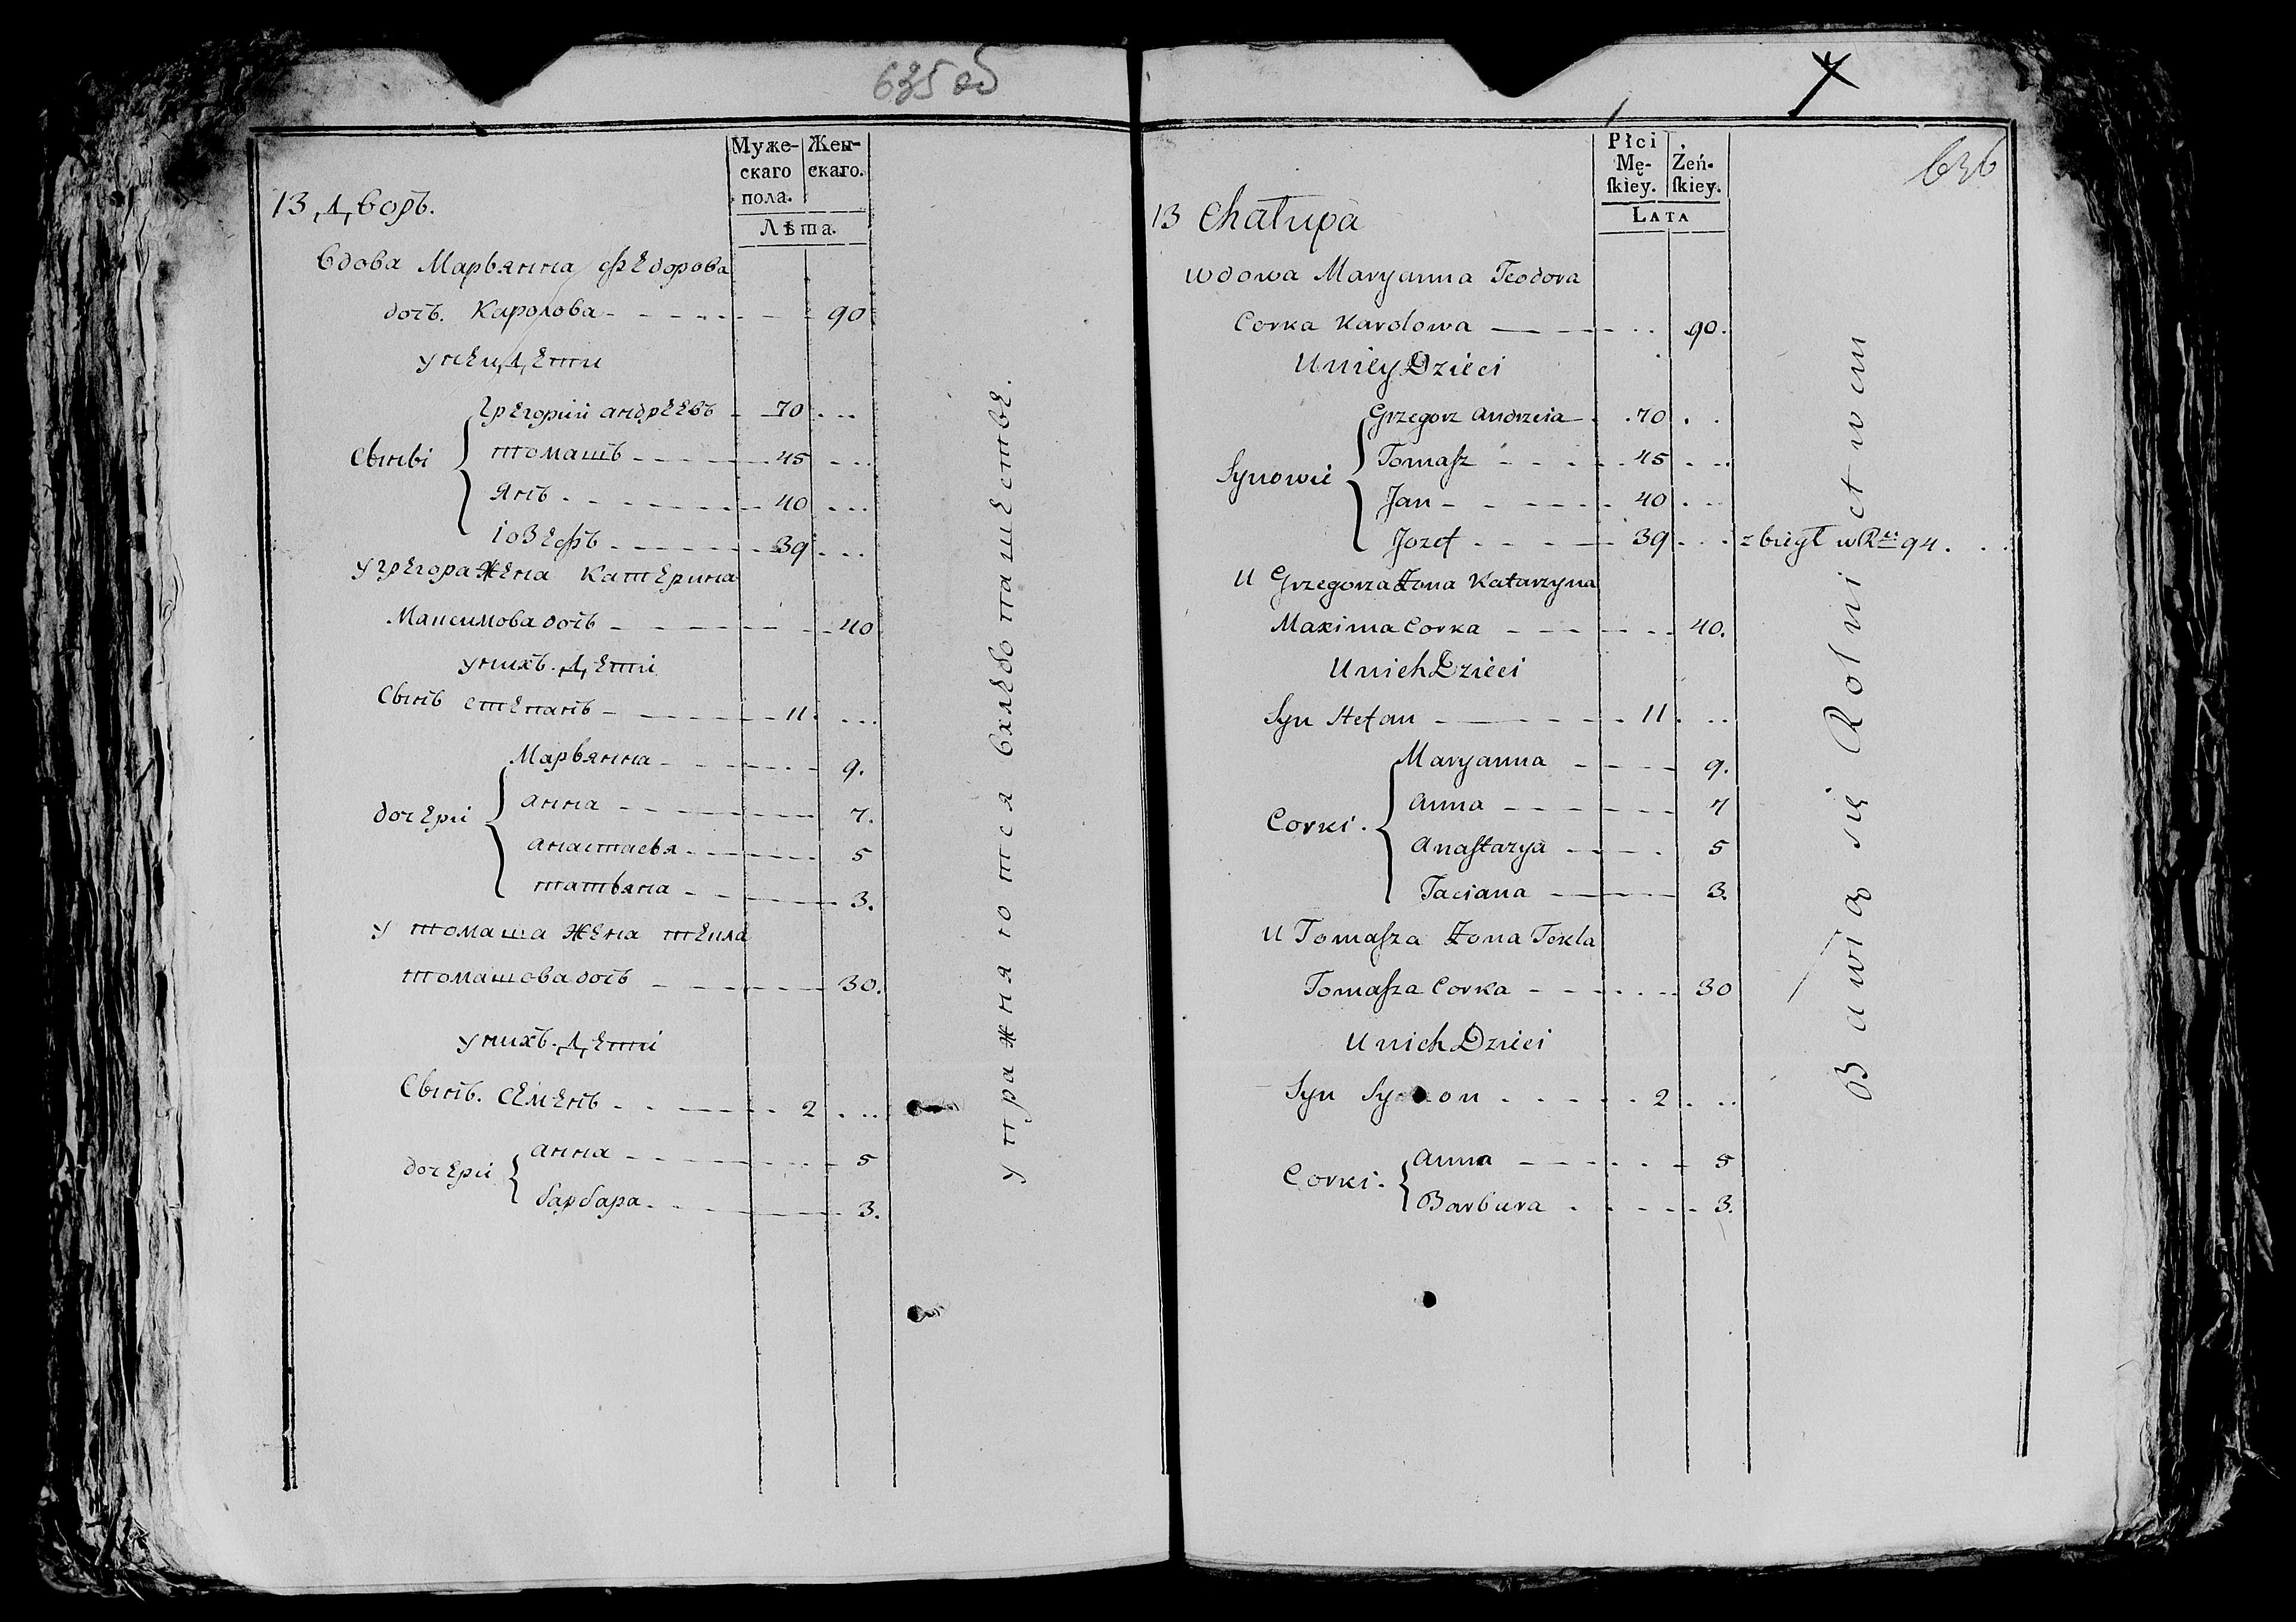 635 об
Муже-
скаго
пола.
Жен-
скаго.
Лѣта.
13 Дворъ.
Вдова Марьянна Федорова
дочь Каролова 90
У неи Дети
Сыныi
Грегорий андреевъ 70
томашъ 45
Янъ 40
iозефъ 39
У грегора Жена Катерина
Максимова дочь 40
У нихъ Детi
Сынъ степанъ 11
дочерiи
Марьянна 9.
анна 7.
анастасья 5
татьяна 3.
У томаша Жена текла
томашова дочь 30.
У нихъ Детi
Сынъ. Семенъ 2
дочерiи
анна 5
барбара 3.
упражняются в хлебопашестве.
636
Płci
Mę-
ſkiey.
Żeń-
ſkiey.
LATA
13 Chałupa
Wdowa Maryanna Teodora
Corka Karolowa 90.
U niey Dzieci
Synowie
Grzegorz Andrzeia 70
Tomaſz 45
Jan 40
Jozef 39 zbiegł w R. 94.
U Grzegorza Zona Katarzyna
Maxima Corka 40.
U nich Dzieci
Syn Stefan 11
Corki.
Maryanna 9.
Anna 7
Anaſtazya 5
Taciana 3.
U Tomaſza Zona Tekla
Tomaſza Corka 30
U nich Dzieci
Syn Symon 2
Corki.
Anna 5
Barbara 3.
Bawią się Rolnictwem